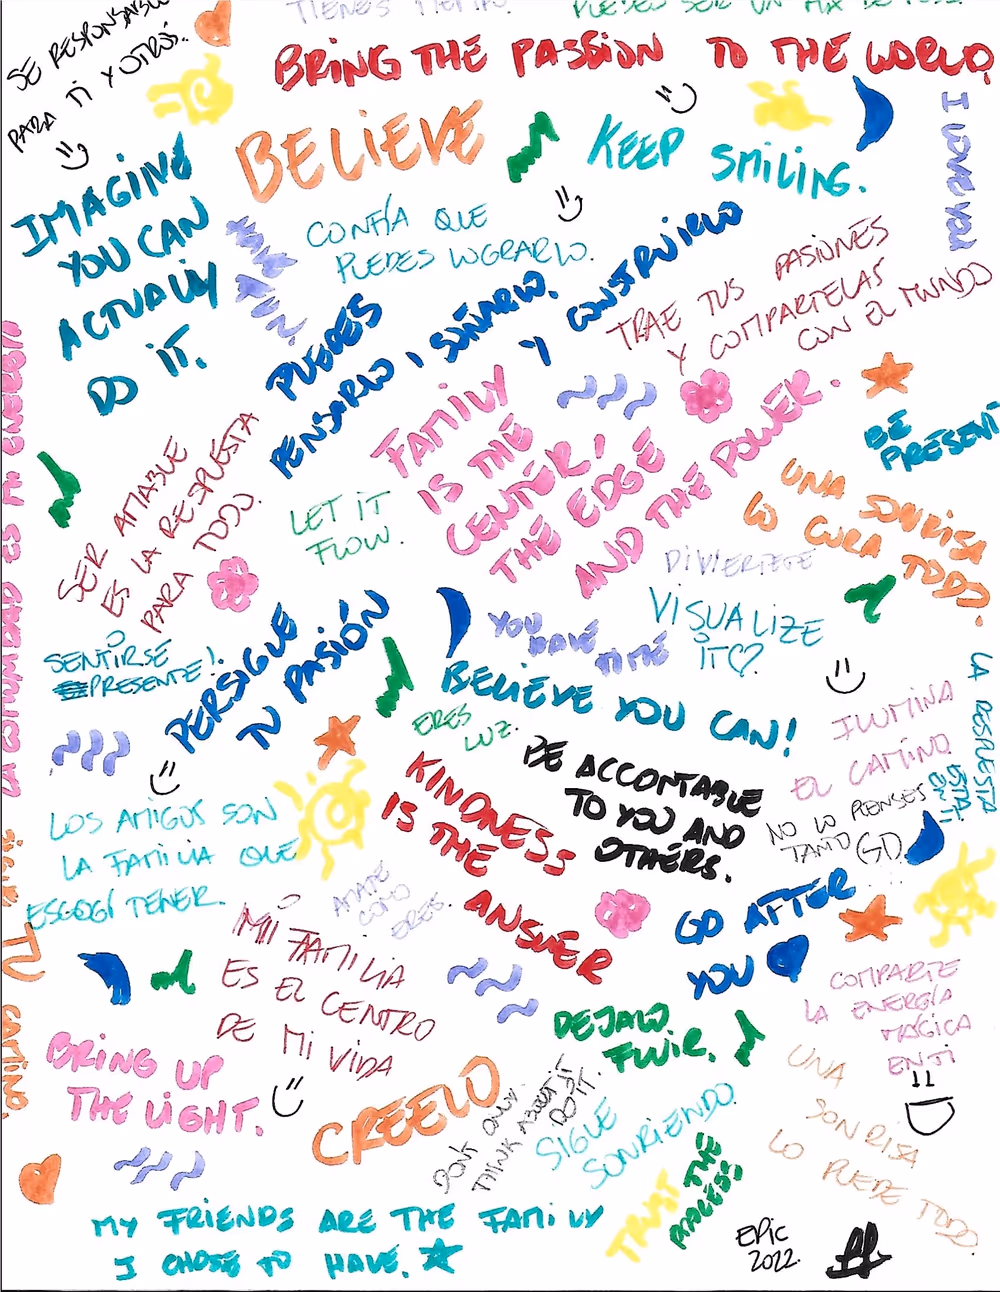 SE RESPONSABLE
PARA TI Y OTROS.
TIENES TIEMPO.
BRING THE PASSION TO THE WORLD,
BELIEVE
KEEP SMILING.
I LOVE YOU
IMAGINE
YOU CAN
ACTUALLY
DO IT.
HAVE
FUN.
CONFÍA QUE
PUEDES LOGRARLO.
PUEDES
PENSARLO, SOÑARLO.
Y CONSTRUIRLO
TRAE TUS PASIONES
Y COMPARTELAS
CON EL MUNDO
LA COMUNIDAD ES MI ENERGIA
SER AMABLE
ES LA RESPUESTA
PARA TODO.
LET IT
FLOW.
FAMILY
IS THE
CENTER,
THE EDGE
AND THE POWER.
BE
PRESENT
UNA SONRISA
LO CURA TODO.
DIVIERTETE
SENTIRSE
PRESENTE!
PERSIGUE
TU PASIÓN
YOU
HAVE
TIME
VISUALIZE
IT
BELIEVE YOU CAN!
ERES
LUZ.
ILUMINA
EL CAMINO.
LA RESPUESTA
ESTA
EN TI
LOS AMIGOS SON
LA FAMILIA QUE
ESCOGÍ TENER.
KINDNESS
IS THE
ANSWER
BE ACCONTABLE
TO YOU AND
OTHERS.
NO LO PIENSES
TANTO (GD).
AMATE
COMO
ERES.
GO AFTER
YOU
MI FAMILIA
ES EL CENTRO
DE MI VIDA
TU CAMINO.
DEJALO
FLUIR.
COMPARTE
LA ENERGÍA
MAGICA
EN TI
BRING UP
THE LIGHT.
CREELO
DON'T ONLY
THINK ABOUT IT
DO IT.
SIGUE
SONRIENDO.
UNA
SONRISA
LO PUEDE TODO.
TRUST THE
PROCESS
MY FRIENDS ARE THE FAMILY
I CHOSE TO HAVE.
EPIC
2022.